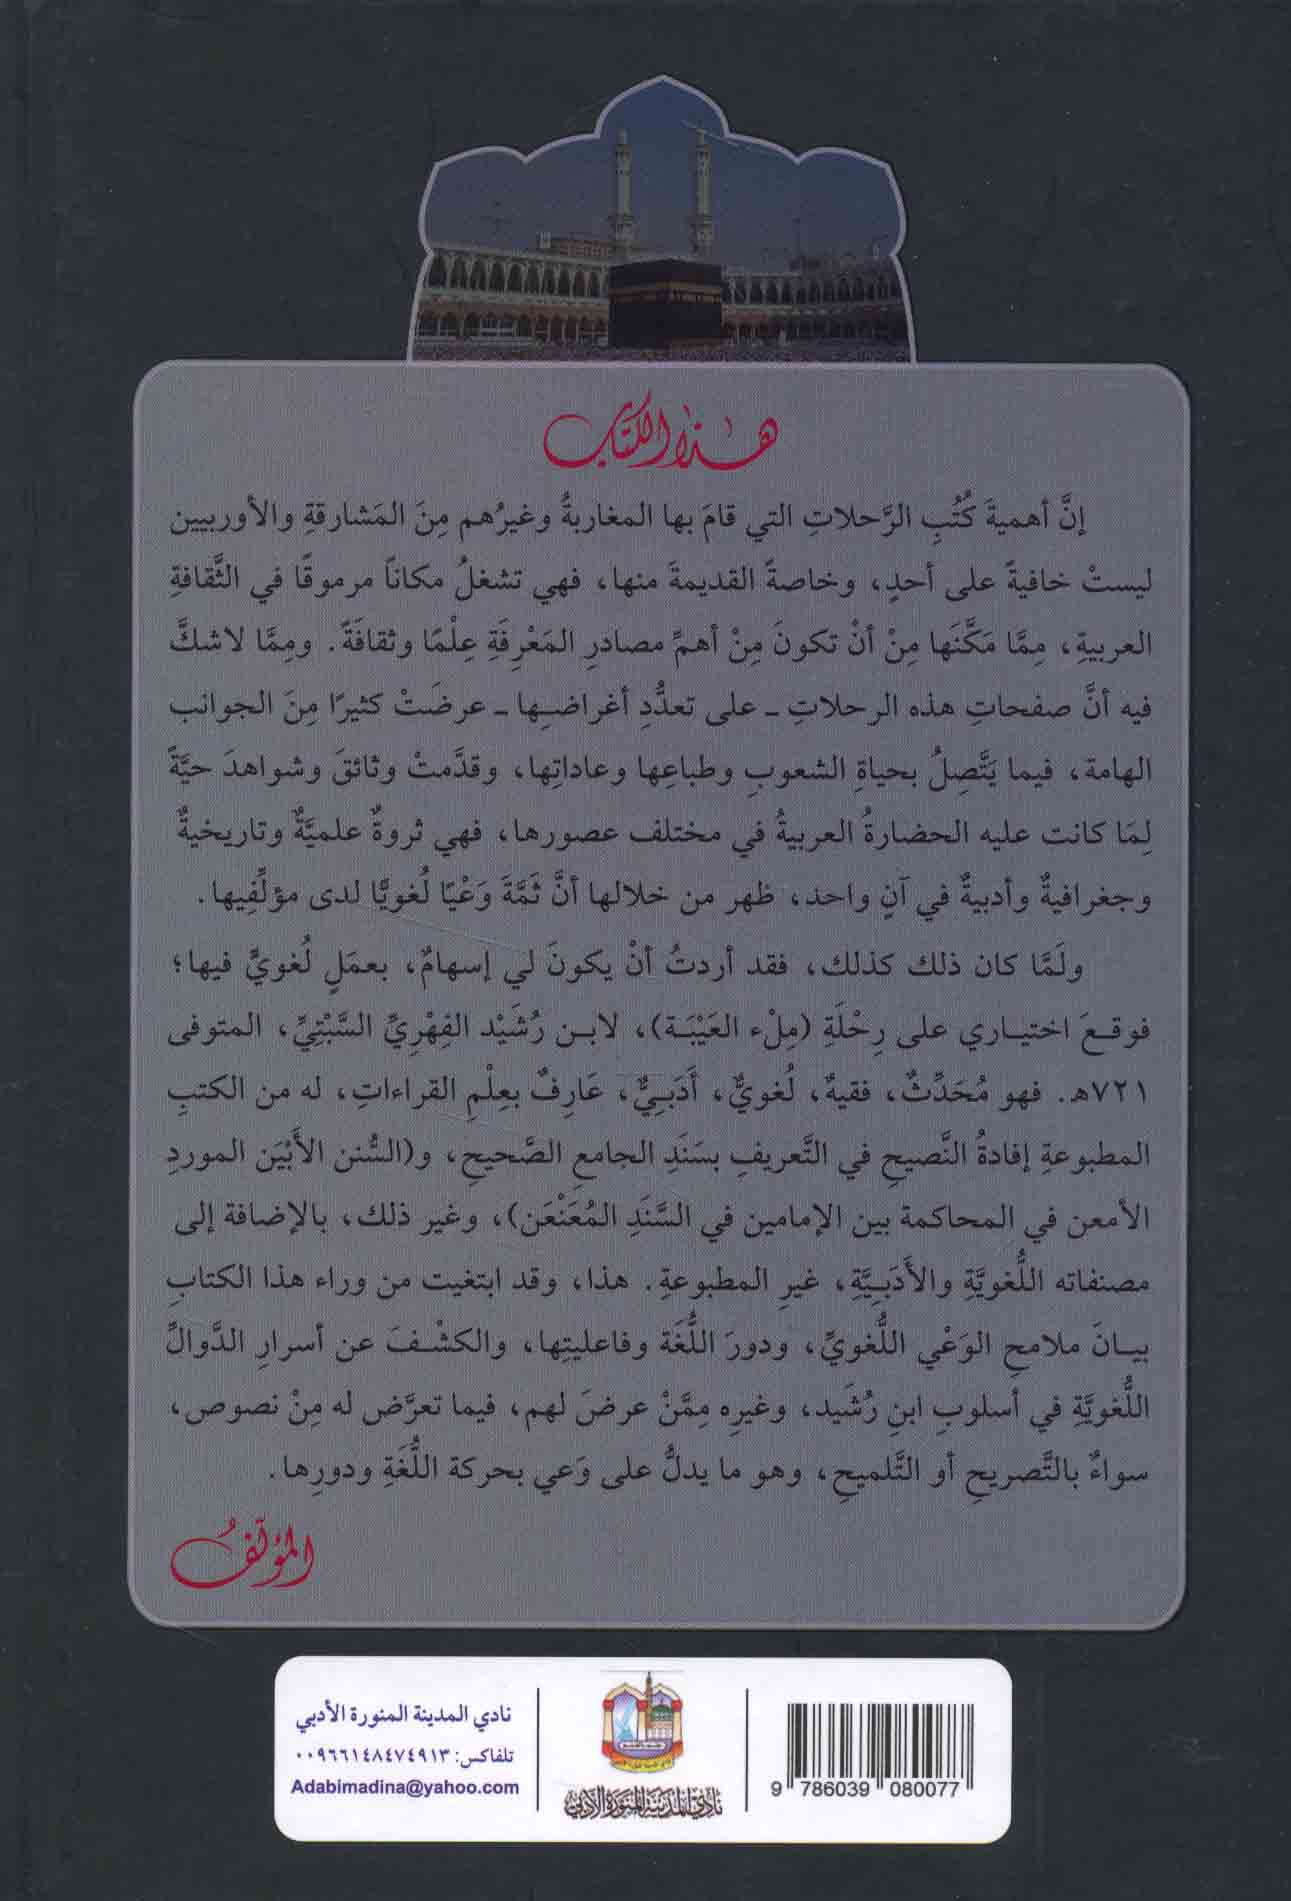 هذا الكتاب
إنَّ أهميةَ كُتُبِ الرَّحلاتِ التي قامَ بها المغاربةُ وغيرُهم مِنَ المَشارقةِ والأوربيين
ليستْ خافيةً على أحدٍ، وخاصةً القديمةَ منها، فهي تشغلُ مكاناً مرموقًا في الثَّقافةِ
العربيةِ، مِمَّا مَكَّنَها مِنْ أنْ تكونَ مِنْ أهمِّ مصادرِ المَعْرِفَةِ عِلْمًا وثقافَةً. ومِمَّا لاشكَّ
فيه أنَّ صفحاتِ هذه الرحلاتِ ـ على تعدُّدِ أغراضِها ـ عرضَتْ كثيرًا مِنَ الجوانب
الهامة، فيما يَتَّصِلُ بحياةِ الشعوبِ وطباعِها وعاداتِها، وقدَّمتْ وثائقَ وشواهدَ حيَّةً
لِمَا كانت عليه الحضارةُ العربيةُ في مختلف عصورها، فهي ثروةٌ علميَّةٌ وتاريخيةٌ
وجغرافيةٌ وأدبيةٌ في آنٍ واحد، ظهر من خلالها أنَّ ثَمَّةَ وَعْيًا لُغويًّا لدى مؤلِّفِيها.
ولَمَّا كان ذلك كذلك، فقد أردتُ أنْ يكونَ لي إسهامٌ، بعمَلٍ لُغويٍّ فيها؛
فوقعَ اختياري على رِحْلَةِ (مِلْء العَيْبَة)، لابن رُشَيْد الفِهْرِيِّ السَّبْتِيِّ، المتوفى
٧٢١هـ. فهو مُحَدِّثٌ، فقيهٌ، لُغويٌّ، أَدَبِيٌّ، عَارِفٌ بعِلْمِ القراءاتِ، له من الكتبِ
المطبوعةِ إفادةُ النَّصيحِ في التَّعريفِ بسَنَدِ الجامعِ الصَّحيحِ، و(السُّنن الأَبْيَن الموردِ
الأمعن في المحاكمة بين الإمامين في السَّنَدِ المُعَنْعَن)، وغير ذلك، بالإضافة إلى
مصنفاته اللُّغويَّةِ والأَدَبِيَّةِ، غيرِ المطبوعةِ. هذا، وقد ابتغيت من وراء هذا الكتابِ
بيـانَ ملامحِ الوَعْي اللُّغويِّ، ودورَ اللُّغَة وفاعليتِها، والكشْفَ عن أسرارِ الدَّوالِّ
اللُّغويَّةِ في أسلوبِ ابنِ رُشَيد، وغيرِه مِمَّنْ عرضَ لهم، فيما تعرَّض له مِنْ نصوص،
سواءٌ بالتَّصريحِ أو التَّلميحِ، وهو ما يدلُّ على وَعي بحركة اللُّغَةِ ودورِها.
المؤلفُ
نادي المدينة المنورة الأدبي
تلفاكس: ٠٠٩٦٦١٤٨٤٧٤٩١٣
Adabimadina@yahoo.com
نادي المدينة المنورة الأدبي
9 786039 080077